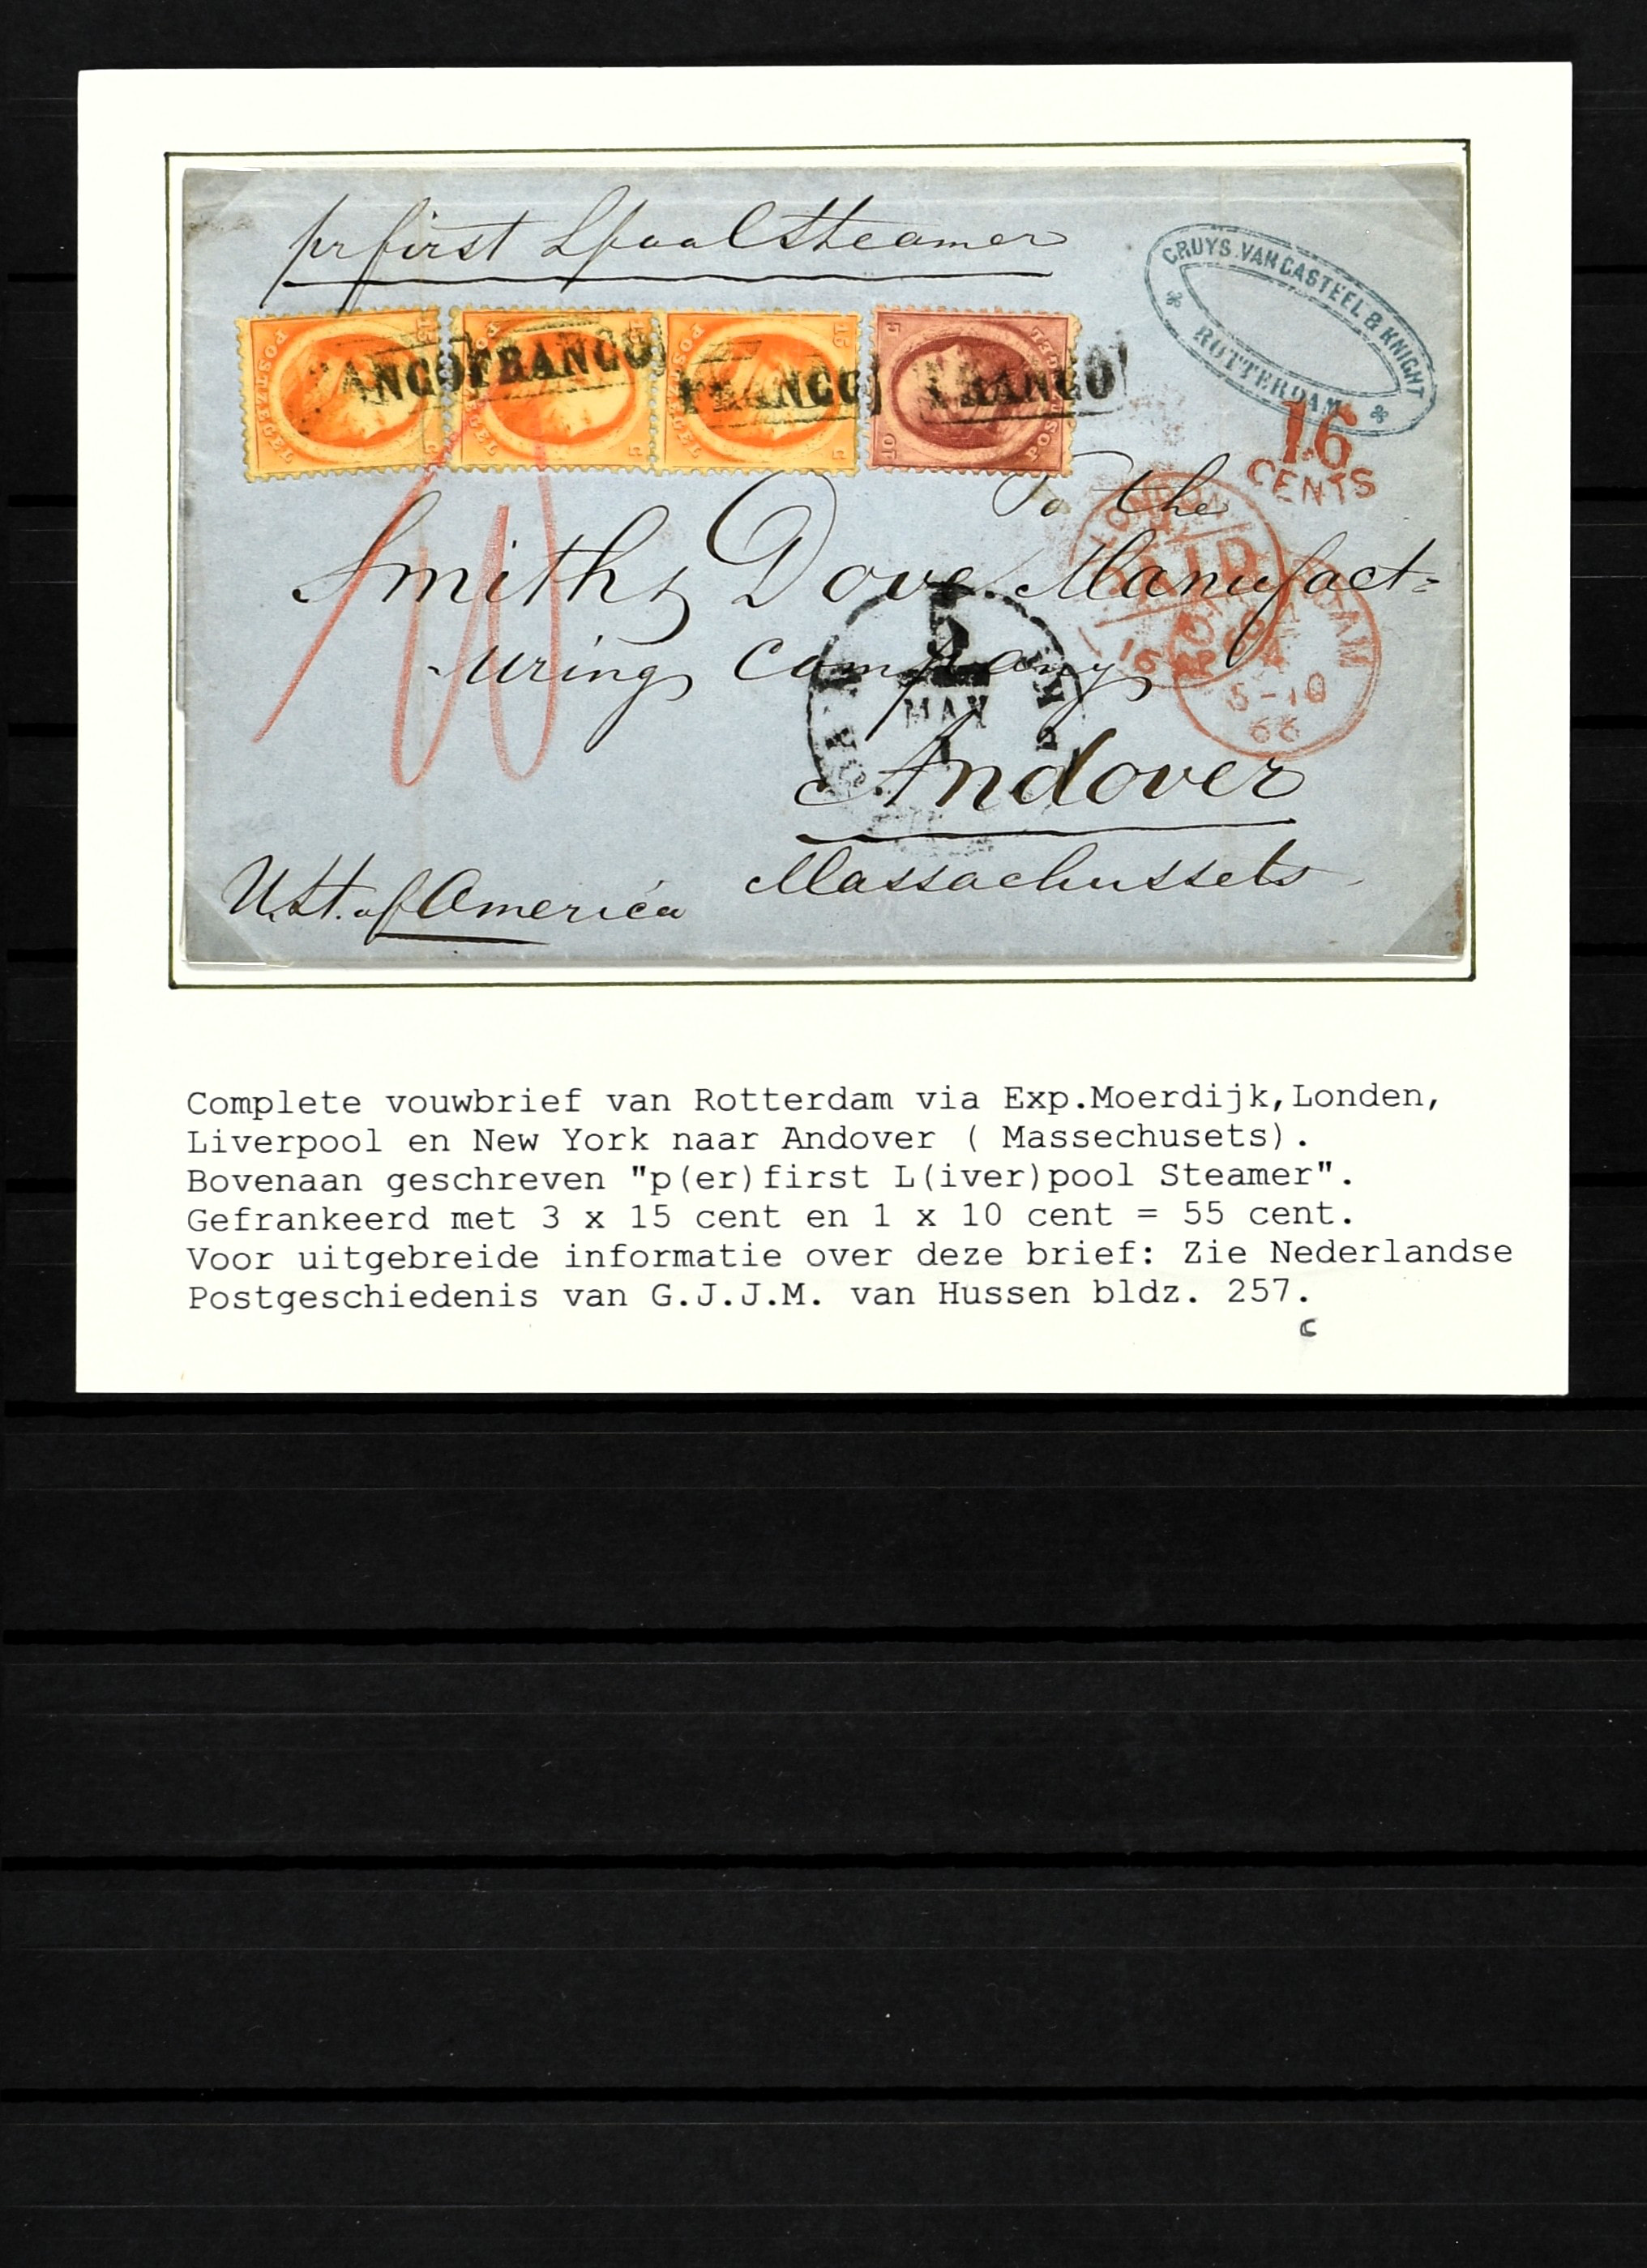 pr first Lpool Steamer
CRUYS VAN CASTEEL & KNIGHT
ROTTERDAM
ANCO FRANCO FRANCO FRANCO
16
CENTS
To the
Smith & Dove Manufact=
uring Company
Andover
Massachussets
U. St. of America
LONDON
PAID
MAY
5-10
66
Complete vouwbrief van Rotterdam via Exp.Moerdijk,Londen,
Liverpool en New York naar Andover ( Massechusets).
Bovenaan geschreven "p(er)first L(iver)pool Steamer".
Gefrankeerd met 3 x 15 cent en 1 x 10 cent = 55 cent.
Voor uitgebreide informatie over deze brief: Zie Nederlandse
Postgeschiedenis van G.J.J.M. van Hussen bldz. 257.
c